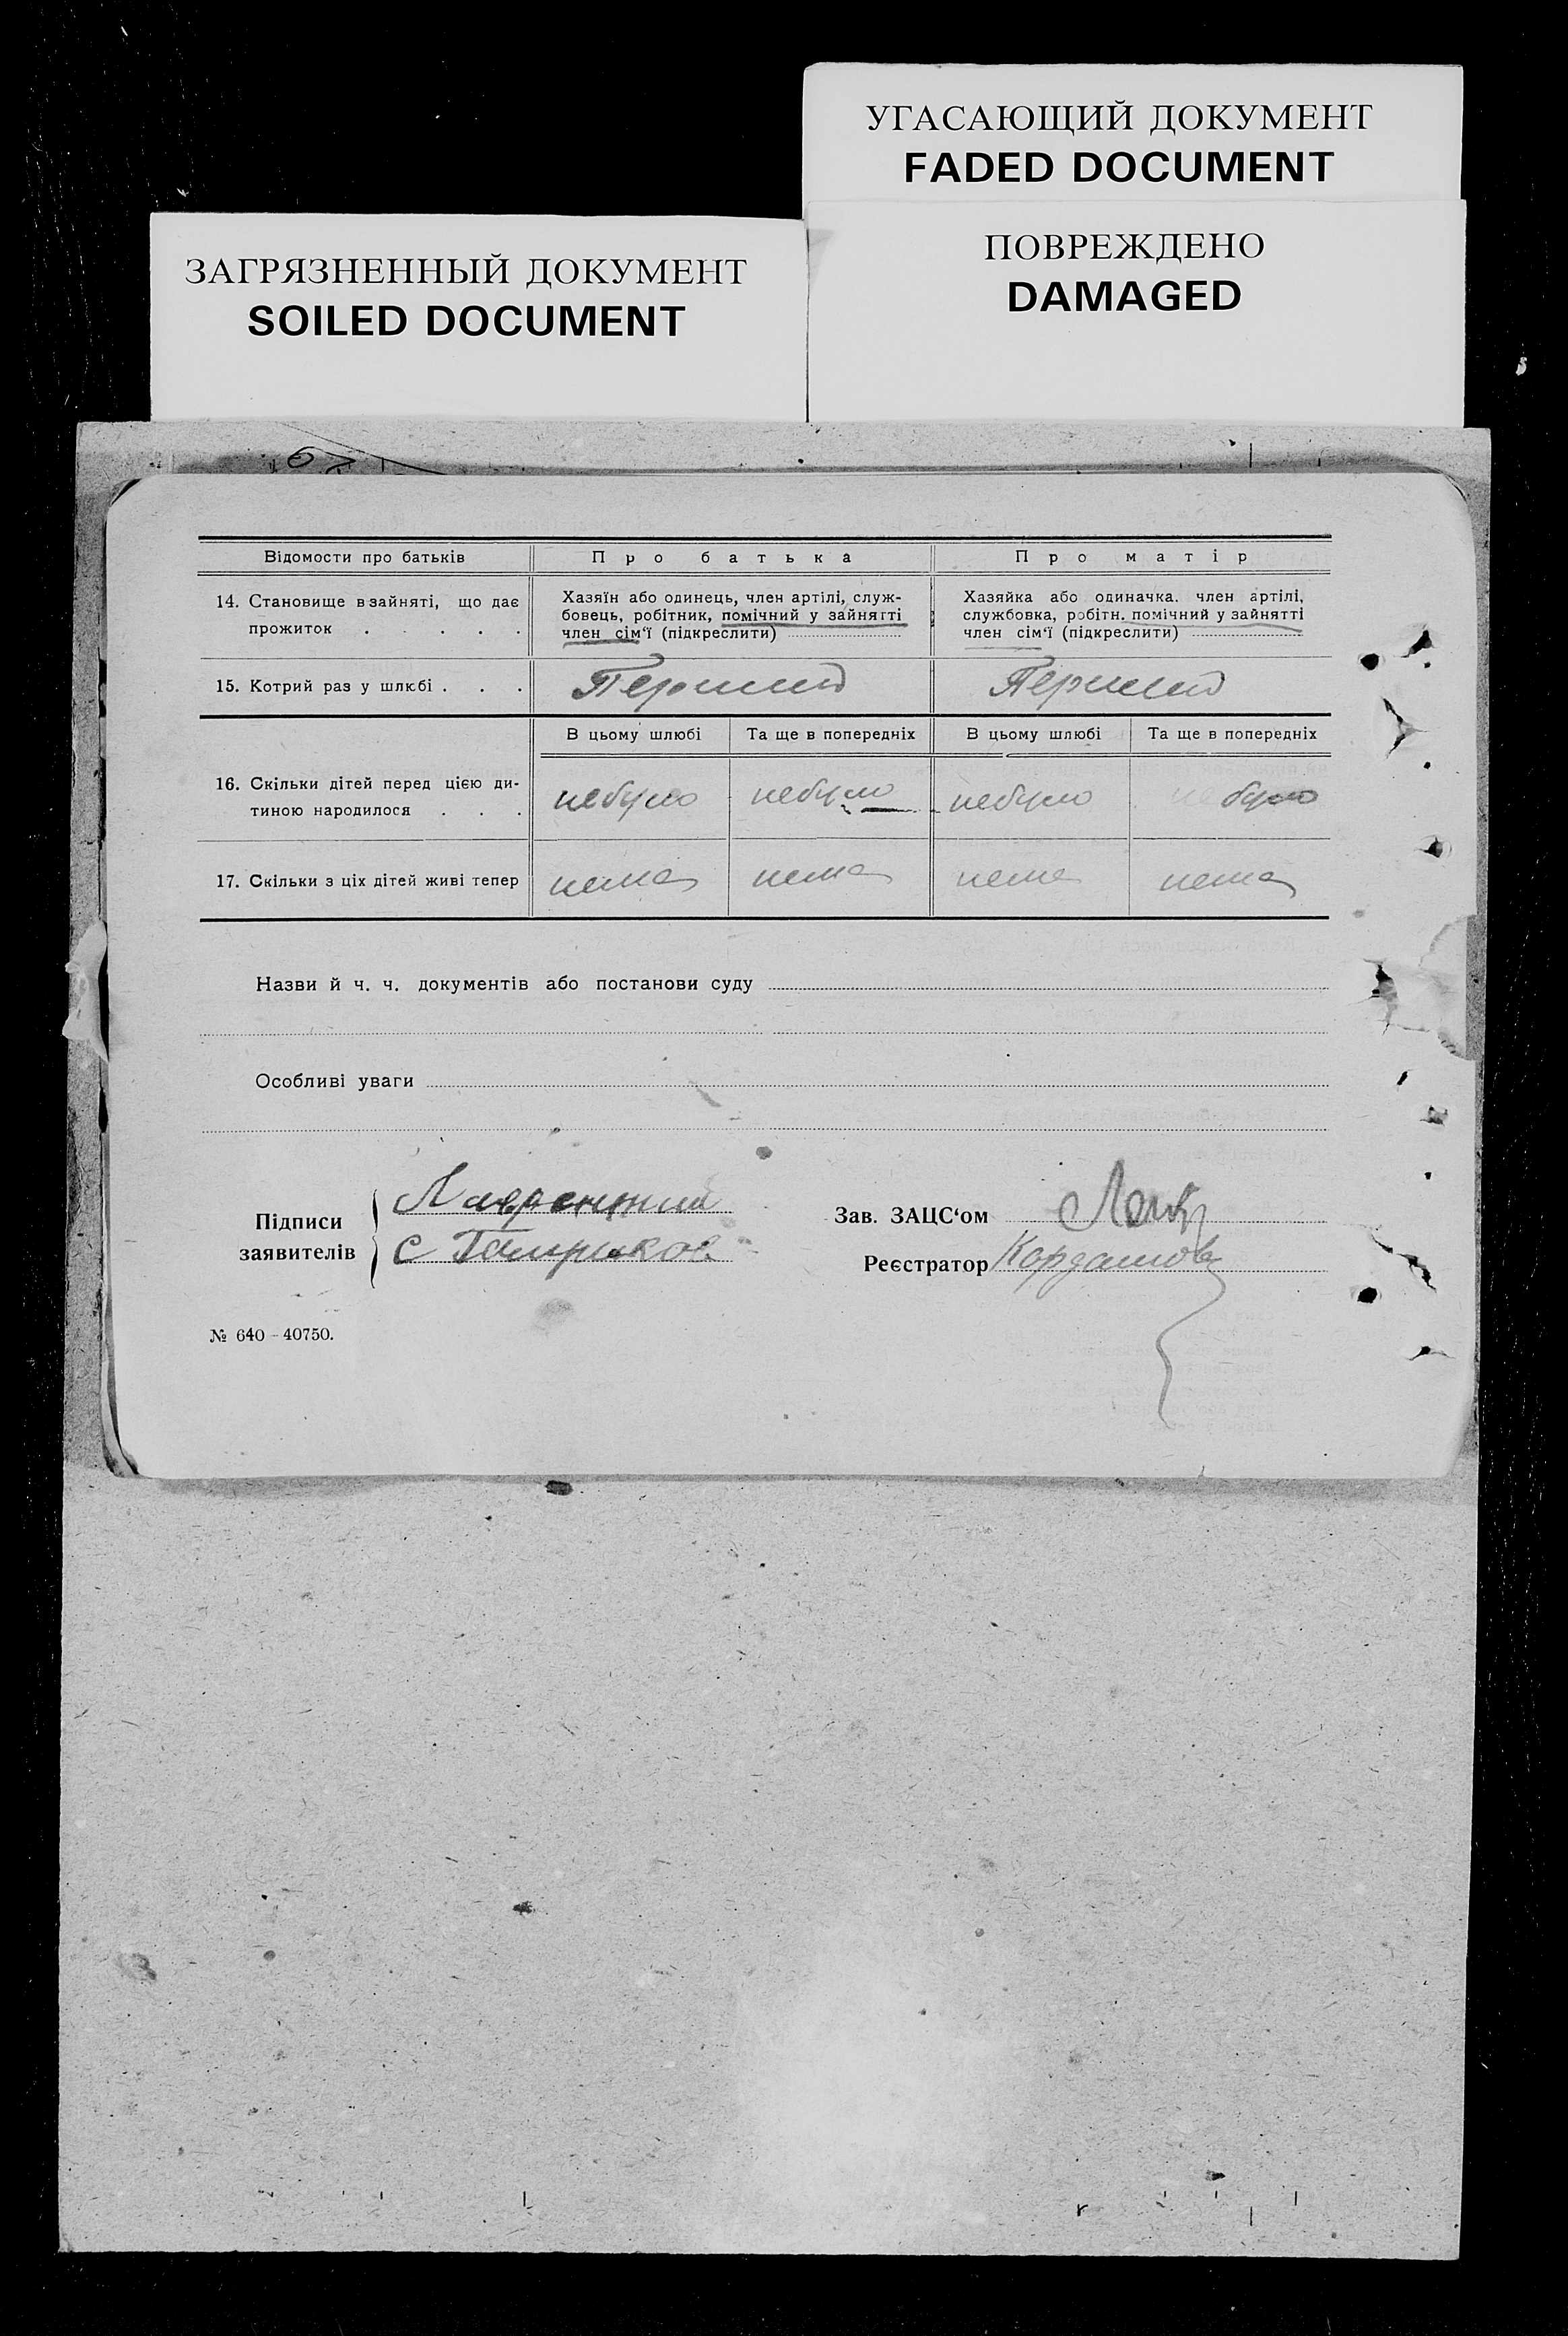 УГАСАЮЩИЙ ДОКУМЕНТ
FADED DOCUMENT
ЗАГРЯЗНЕННЫЙ ДОКУМЕНТ
SOILED DOCUMENT
ПОВРЕЖДЕНО
DAMAGED
Відомости про батьків Про батька Про матір
14. Становище в зайняті, що дає прожиток . . . . .
Хазяїн або одинець, член артілі, служ-
бовець, робітник, помічний у зайнятті
член сім'ї (підкреслити)
Хазяйка або одиначка. член артілі,
службовка, робітн. помічний у зайнятті
член сім'ї (підкреслити)
15. Котрий раз у шлюбі . . . Перший Перший
В цьому шлюбі Та ще в попередніх В цьому шлюбі Та ще в попередніх
16. Скільки дітей перед цією ди-
тиною народилося . . . небуло небуло небуло небуло
17. Скільки з ціх дітей живі тепер нема нема нема нема
Назви й ч. ч. документів або постанови суду
Особливі уваги
Підписи
заявителів
Зав. ЗАЦС‘ом
Реєстратор
№ 640 - 40750.